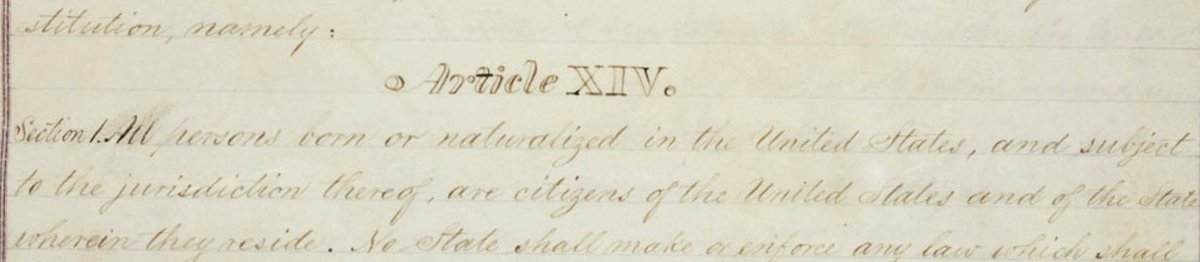 stitution, namely:
Article XIV.
Section 1. All persons born or naturalized in the United States, and subject
to the jurisdiction thereof, are citizens of the United States and of the State
wherein they reside. No State shall make or enforce any law which shall